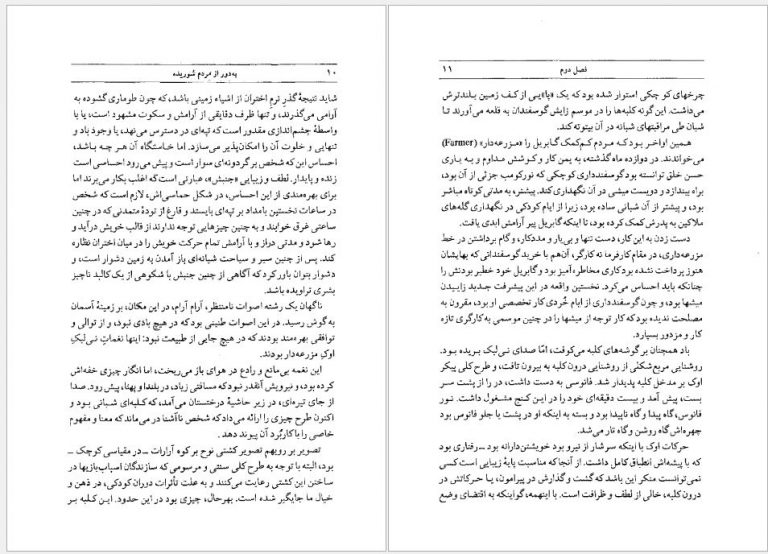 ۱۰ به‌دور از مردم شوریده
شاید نتیجهٔ گذر نرم اختران از اشیاء زمینی باشد، که چون طوماری گشوده به
آرامی می‌گذرند، و تنها ظرف دقایقی از آرامش و سکوت مشهود است، یا با
واسطهٔ چشم‌اندازی مقدور است که تپه‌ای در دسترس می‌نهد، یا وجود باد و
تنهایی و خلوت آن را امکان‌پذیر می‌سازد. اما خاستگاه آن هر چه باشد،
احساس این که شخص بر گردونه‌ای سوار است و پیش می‌رود احساسی است
زنده و پایدار. لطف و زیبایی «جنبش»، عبارتی است که اغلب بکار می‌برند اما
برای بهره‌مندی از این احساس، در شکل حماسی‌اش، لازم است که شخص
در ساعات نخستین بامداد بر تپه‌ای بایستد و فارغ از تودهٔ متمدنی که در چنین
ساعتی غرق خوابند و به چنین چیزهایی توجه ندارند از قالب خویش درآید و
رها شود و مدتی دراز و با آرامش تمام حرکت خویش را در میان اختران نظاره
کند. پس از چنین سیر و سیاحت شبانه‌ای باز آمدن به زمین دشوار است، و
دشوار بتوان باور کرد که آگاهی از چنین جنبش با شکوهی از یک کالبد ناچیز
بشری تراویده باشد.
ناگهان یک رشته اصوات نامنتظر، آرام آرام، در این مکان، بر زمینهٔ آسمان
به گوش رسید. در این اصوات طنینی بود که در هیچ بادی نبود، و از توالی و
توافقی بهره‌مند بودند که در هیچ جایی از طبیعت نبود: اینها نغمات نی‌لبک
اوک مزرعه‌دار بودند.
این نغمه بی‌مانع و رادع در هوای باز می‌ریخت، اما انگار چیزی خفه‌اش
کرده بود، و نیرویش آنقدر نبود که مسافتی زیاد، در بلندا و پهنا، پیش رود. صدا
از جای تیره‌ای، در زیر حاشیهٔ درختستان می‌آمد، که کلبه‌ای شبانی بود و
اکنون طرح چیزی را ارائه می‌داد که شخص ناآشنا در می‌ماند که معنا و مفهوم
خاصی را با کاربُرد آن پیوند دهد.
تصویر بر رویهم تصویر کشتی نوح بر کوه آرارات — در مقیاسی کوچک —
بود، البته با توجه به طرح کلی سنتی و مرسومی که سازندگان اسباب‌بازیها در
ساختن این کشتی رعایت می‌کنند و به علت تأثرات دوران کودکی، در ذهن و
خیال ما جایگیر شده است. بهرحال، چیزی بود در این حدود. این کلبه بر
فصل دوم ۱۱
چرخهای کوچکی استوار شده بود که یک «پا»یی از کف زمین بلندترش
می‌داشت. این گونه کلبه‌ها را در موسم زایش گوسفندان به قلعه می‌آورند تا
شبان طی مراقبتهای شبانه در آن بیتوته کند.
همین اواخر بود که مردم کم‌کمک گابریل را «مزرعه‌دار» (Farmer)
می‌خواندند. در دوازده ماه گذشته، به یمن کار و کوشش مداوم و به یاری
حسن خلق توانسته بود گوسفندداری کوچکی که نورکومب جزئی از آن بود،
براه بیندازد و دویست میشی در آن نگهداری کند. پیشتر، به مدتی کوتاه مباشر
بود، و پیشتر از آن شبانی ساده بود، زیرا از ایام کودکی در نگهداری گله‌های
ملاکین به پدرش کمک کرده بود، تا اینکه گابریل پیر آرامش ابدی یافت.
دست زدن به این کار، دست تنها و بی‌یار و مددکار، و گام برداشتن در خط
مزرعه‌داری، در مقام کارفرما نه کارگر، آن‌هم با خرید گوسفندانی که بهایشان
هنوز پرداخت نشده بود کاری مخاطره‌آمیز بود و گابریل خود خطیر بودنش را
چنانکه باید احساس می‌کرد. نخستین واقعه در این پیشرفت جدید زاییدن
میشها بود، و چون گوسفندداری از ایام خُردی کار تخصصی او بود، مقرون به
مصلحت ندیده بود که کار توجه از میشها را در چنین موسمی به کارگری تازه
کار و مزدور بسپارد.
باد همچنان بر گوشه‌های کلبه می‌کوفت، امّا صدای نی‌لبک بریده بود.
روشنایی مربع‌شکلی از روشنایی درون کلبه به بیرون تافت، و طرح کلی پیکر
اوک بر مدخل کلبه پدیدار شد. فانوسی به دست داشت، در را از پشت سر
بست، پیش آمد و بیست دقیقه‌ای خود را در این کنج مشغول داشت. نور
فانوس، گاه پیدا و گاه ناپیدا بود و بسته به اینکه او در پشت یا جلو فانوس بود
چهره‌اش گاه روشن و گاه تار می‌شد.
حرکات اوک با اینکه سرشار از نیرو بود خویشتن‌دارانه بود — رفتاری بود
که با پیشه‌اش انطباق کامل داشت. از آنجا که مناسبت پایهٔ زیبایی است کسی
نمی‌توانست منکر این باشد که گشت و گذارش در پیرامون، یا حرکاتش در
درون کلبه، خالی از لطف و ظرافت است. با اینهمه، گو اینکه به اقتضای وضع